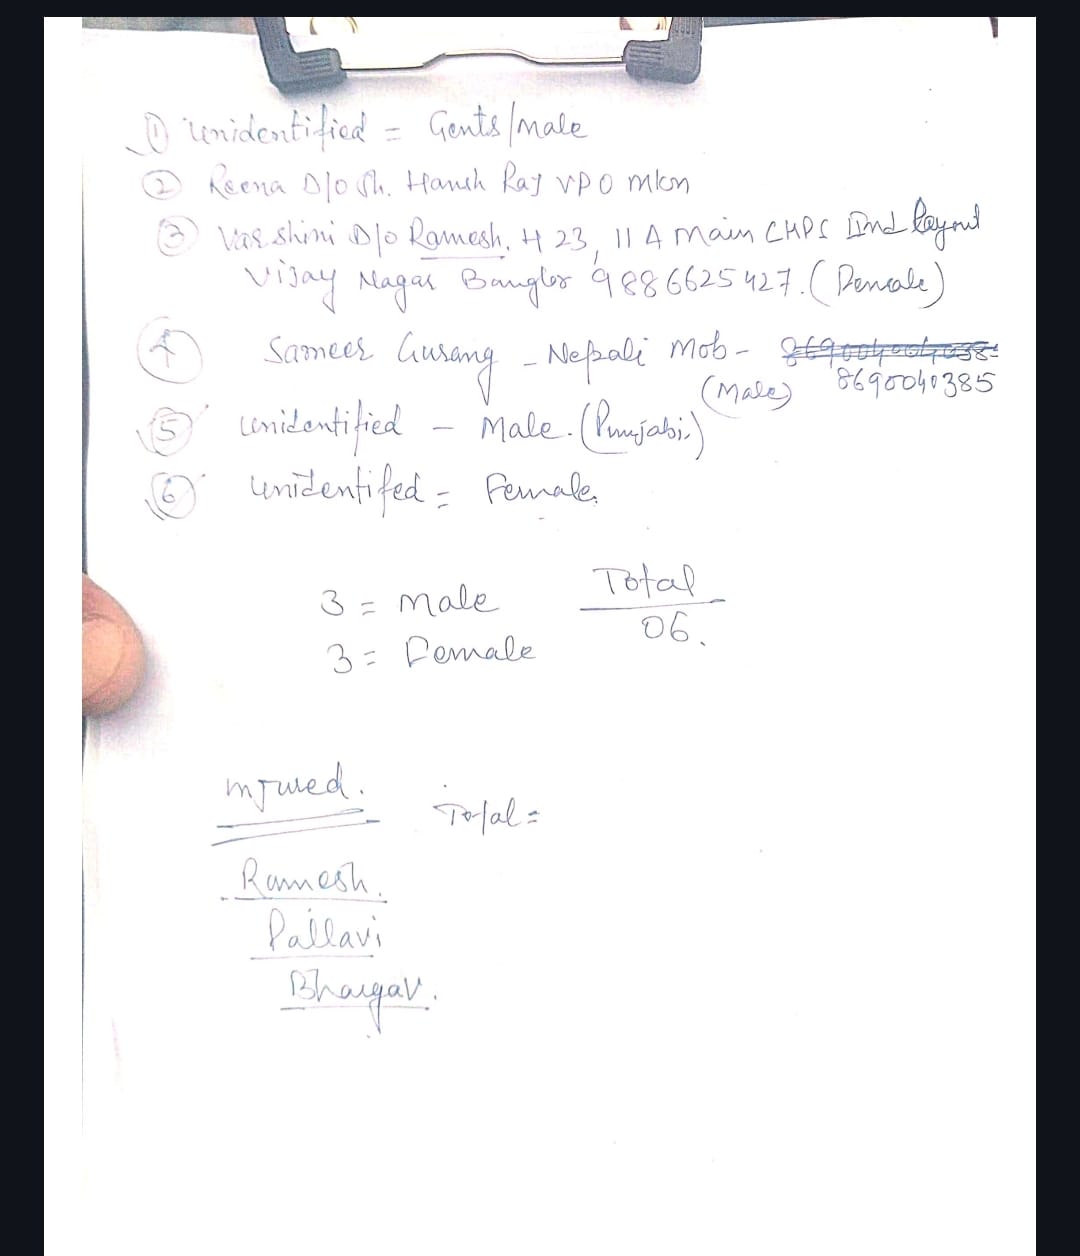 ① Unidentified = Gents/male
② Reena D/o Sh. Hansh Raj VPO mkn
③ Varshini D/o Ramesh, H 23, 11 A Main CHPS IInd Layout
Vijay Nagar Banglor 9886625427. (Female)
④ Sameer Gurang - Nepali Mob-
(Male) 8690040385
⑤ unidentified - Male. (Punjabi)
⑥ unidentifed = Female.
3 = male Total
3 = Female 06.
injured. Total =
Ramesh.
Pallavi
Bhargav.